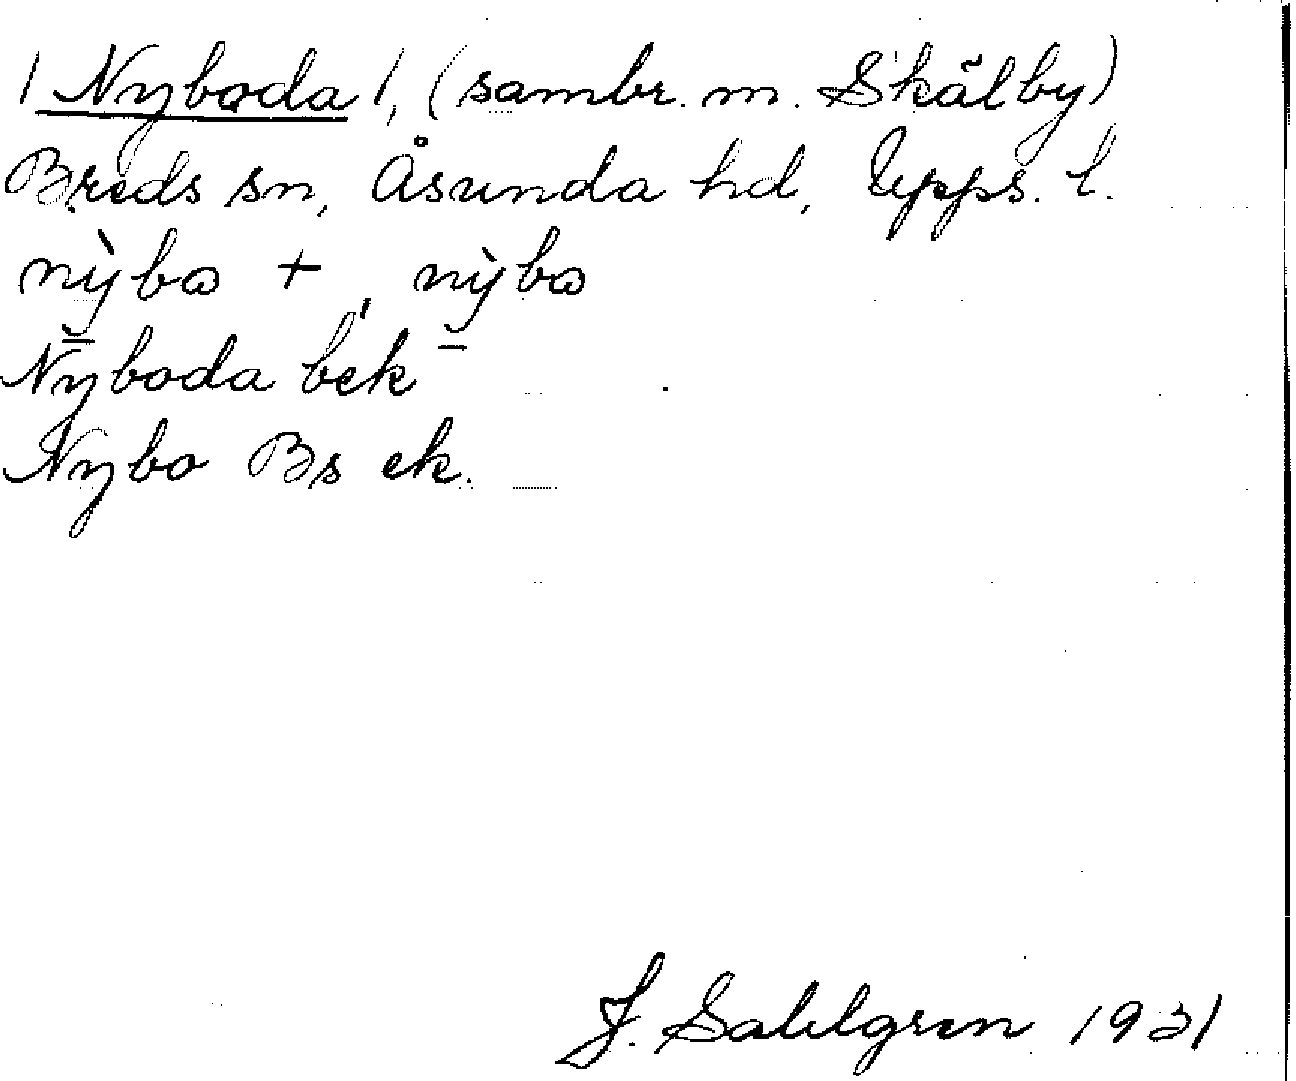 / Nyboda /, (sambr. m. Skälby)
Breds sn, Åsunda hd, Upps. l.
nỳbω +, nỳbω
Nyboda bek
Nybo Bs ek.
J. Sahlgren 1931